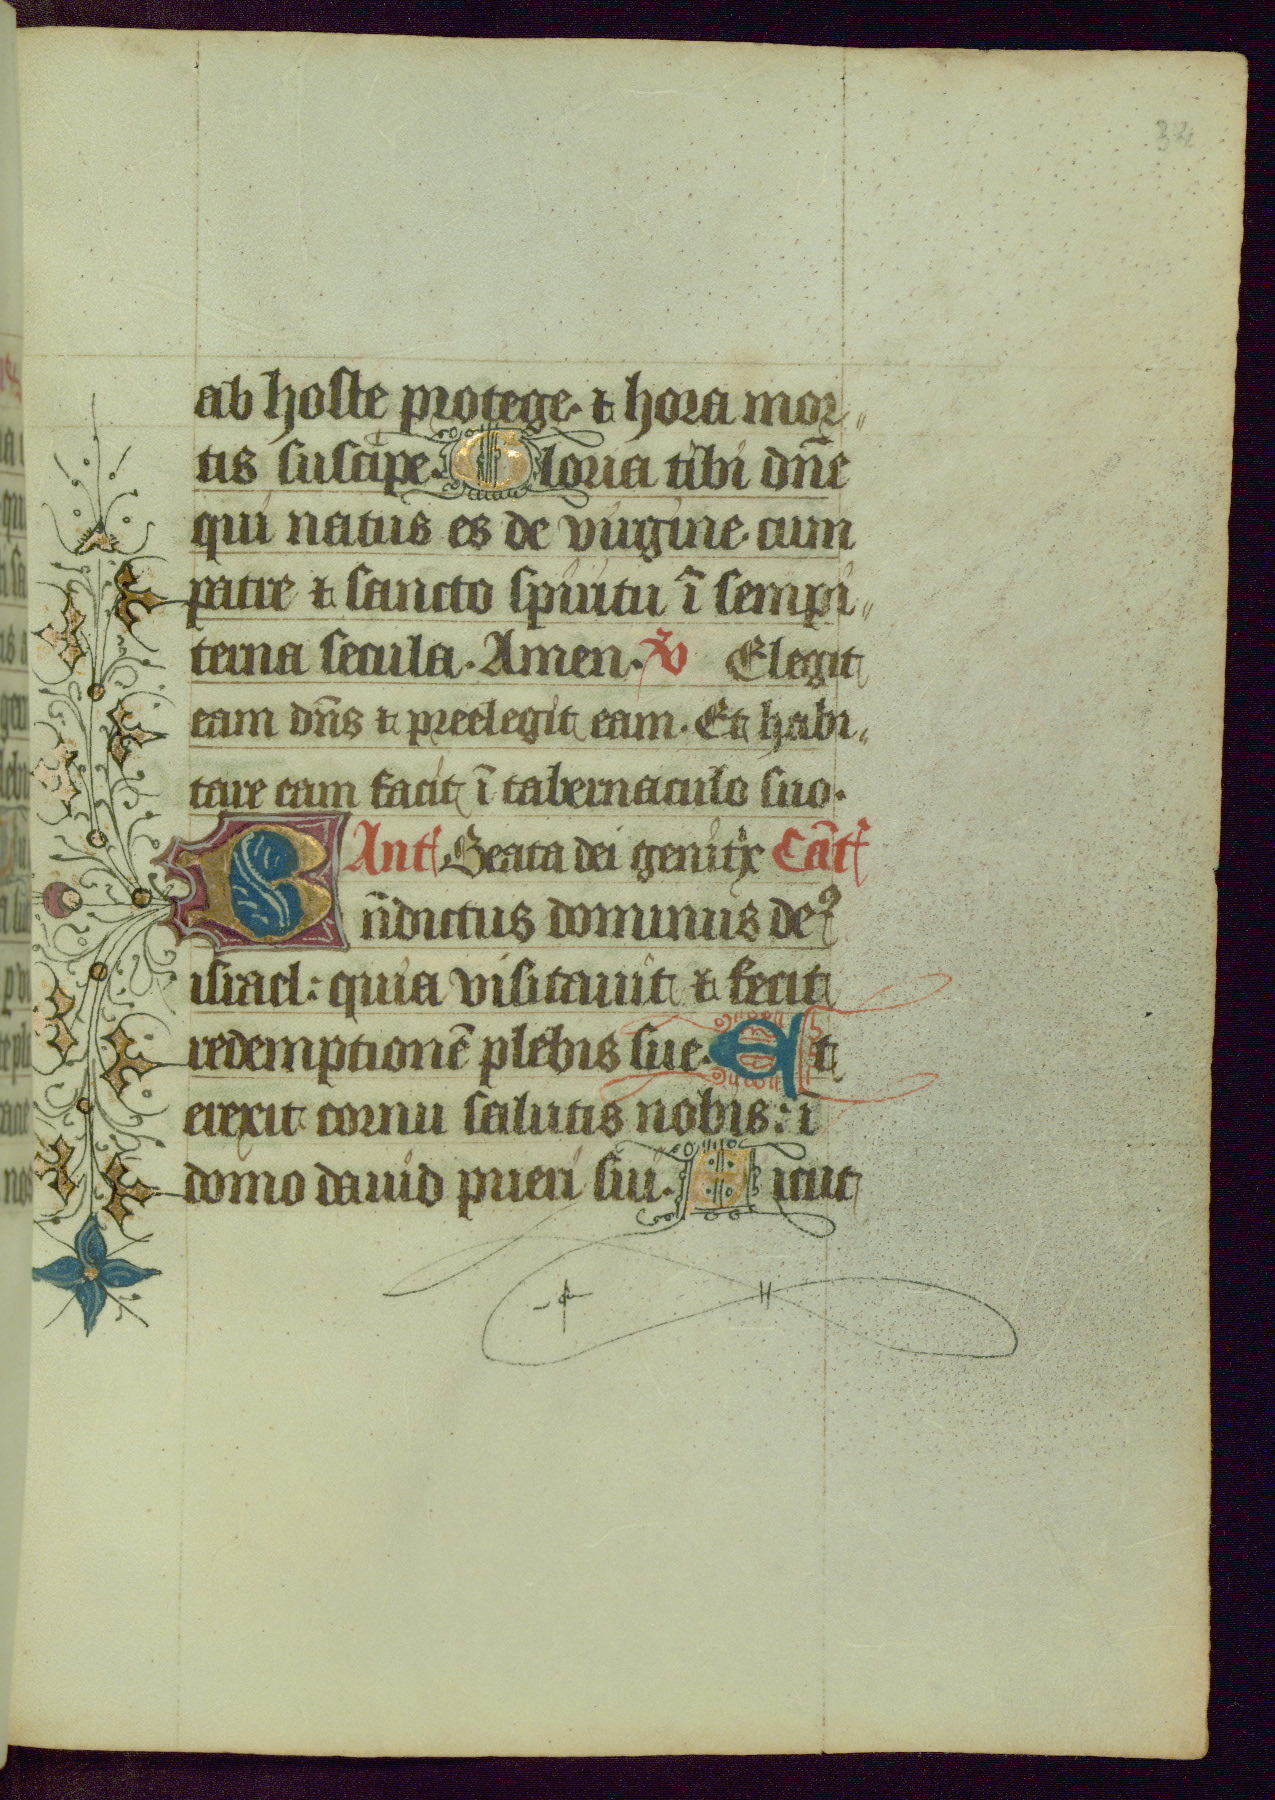 34
ab hoste protege. ⁊ hora mor-
tis suscipe. Gloria tibi dn̄e
qui natus es de virgine. cum
patre ⁊ sancto spiritu ī sempi-
terna secula. Amen. ℣ Elegit
eam dn̄s ⁊ preelegit eam. Et habi-
tare eam facit ī tabernaculo suo.
Ant̉ Beata dei genitͥx Cāt̉
Bn̄dictus dominus deꝰ
israel: quia visitauit ⁊ fecit
redemptionē plebis sue. Et
erexit cornu salutis nobis: ī
domo dauid pueri sui. Sicut